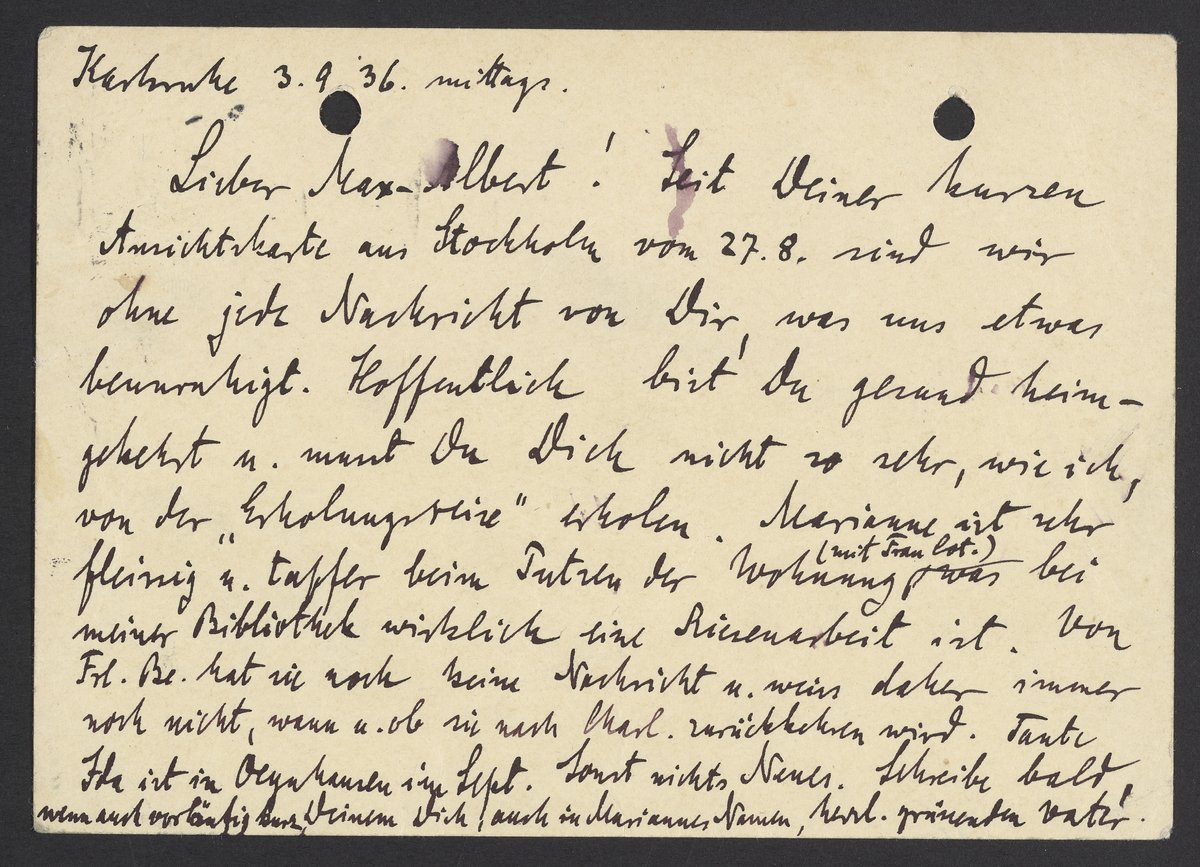 Karlsruhe 3.9.36. mittags.
Lieber Max-Albert! Seit Deiner kurzen
Ansichtskarte aus Stockholm vom 27.8. sind wir
ohne jede Nachricht von Dir, was uns etwas
beunruhigt. Hoffentlich bist Du gesund heim-
gekehrt u. musst Du Dich nicht so sehr, wie ich,
von der „Erholungsreise" erholen. Marianne ist sehr
(mit Frau Cot.)
fleissig u. tapfer beim Putzen der Wohnung, was bei
meiner Bibliothek wirklich eine Riesenarbeit ist. Von
Frl. Be. hat sie noch keine Nachricht u. weiss daher immer
noch nicht, wann u. ob sie nach Charl. zurückkehren wird. Tante
Ida ist in Oeynhausen im Sept. Sonst nichts Neues. Schreibe bald,
wenn auch vorläufig kurz, Deinem Dich, auch in Mariannes Namen, herzl. grüssenden Vater.